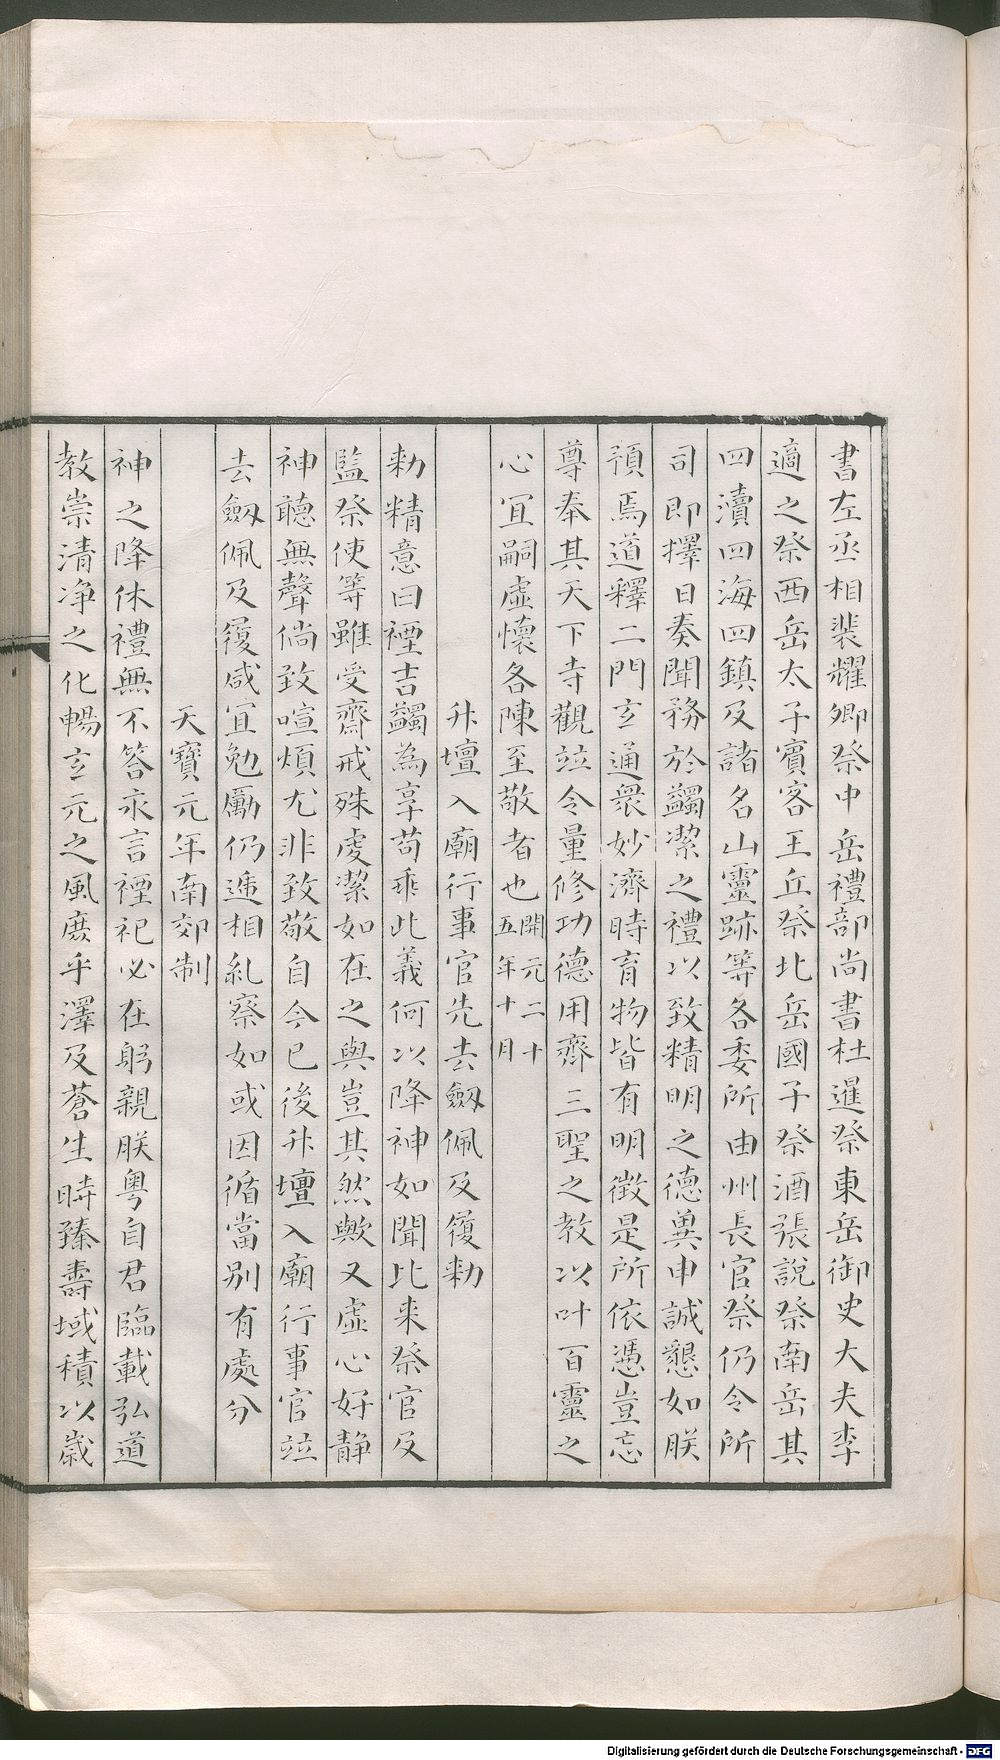 書左丞相裴耀卿祭中岳禮部尚書杜暹祭東岳御史大夫李
適之祭西岳太子賓客王丘祭北岳國子祭酒張説祭南岳其
四瀆四海四鎮及諸名山靈跡等各委所由州長官祭仍令所
司即擇日奏聞務於蠲潔之禮以致精明之德兾申誠懇如朕
預焉道釋二門玄通衆妙濟時育物皆有明徵是所依憑豈忘
尊奉其天下寺觀竝令量修功德用齊三聖之教以叶百靈之
心宜嗣虛懷各陳至敬者也開元二十五年十月
升壇入廟行事官先去劔佩及履勑
勑精意曰禋吉蠲為享苟乖此義何以降神如聞比来祭官及
監祭使等雖受齋戒殊虔潔如在之與豈其然歟又虛心好静
神聽無聲倘致喧煩尤非致敬自今已後升壇入廟行事官竝
去劔佩及履咸宜勉勵仍遞相糺察如或因循當别有處分
天寶元年南郊制
神之降休禮無不答永言禋祀必在躬親朕粤自君臨載弘道
教崇清净之化暢玄元之風庻乎澤及蒼生時臻壽域積以歲
Digitalisierung gefördert durch die Deutsche Forschungsgemeinschaft - DFG